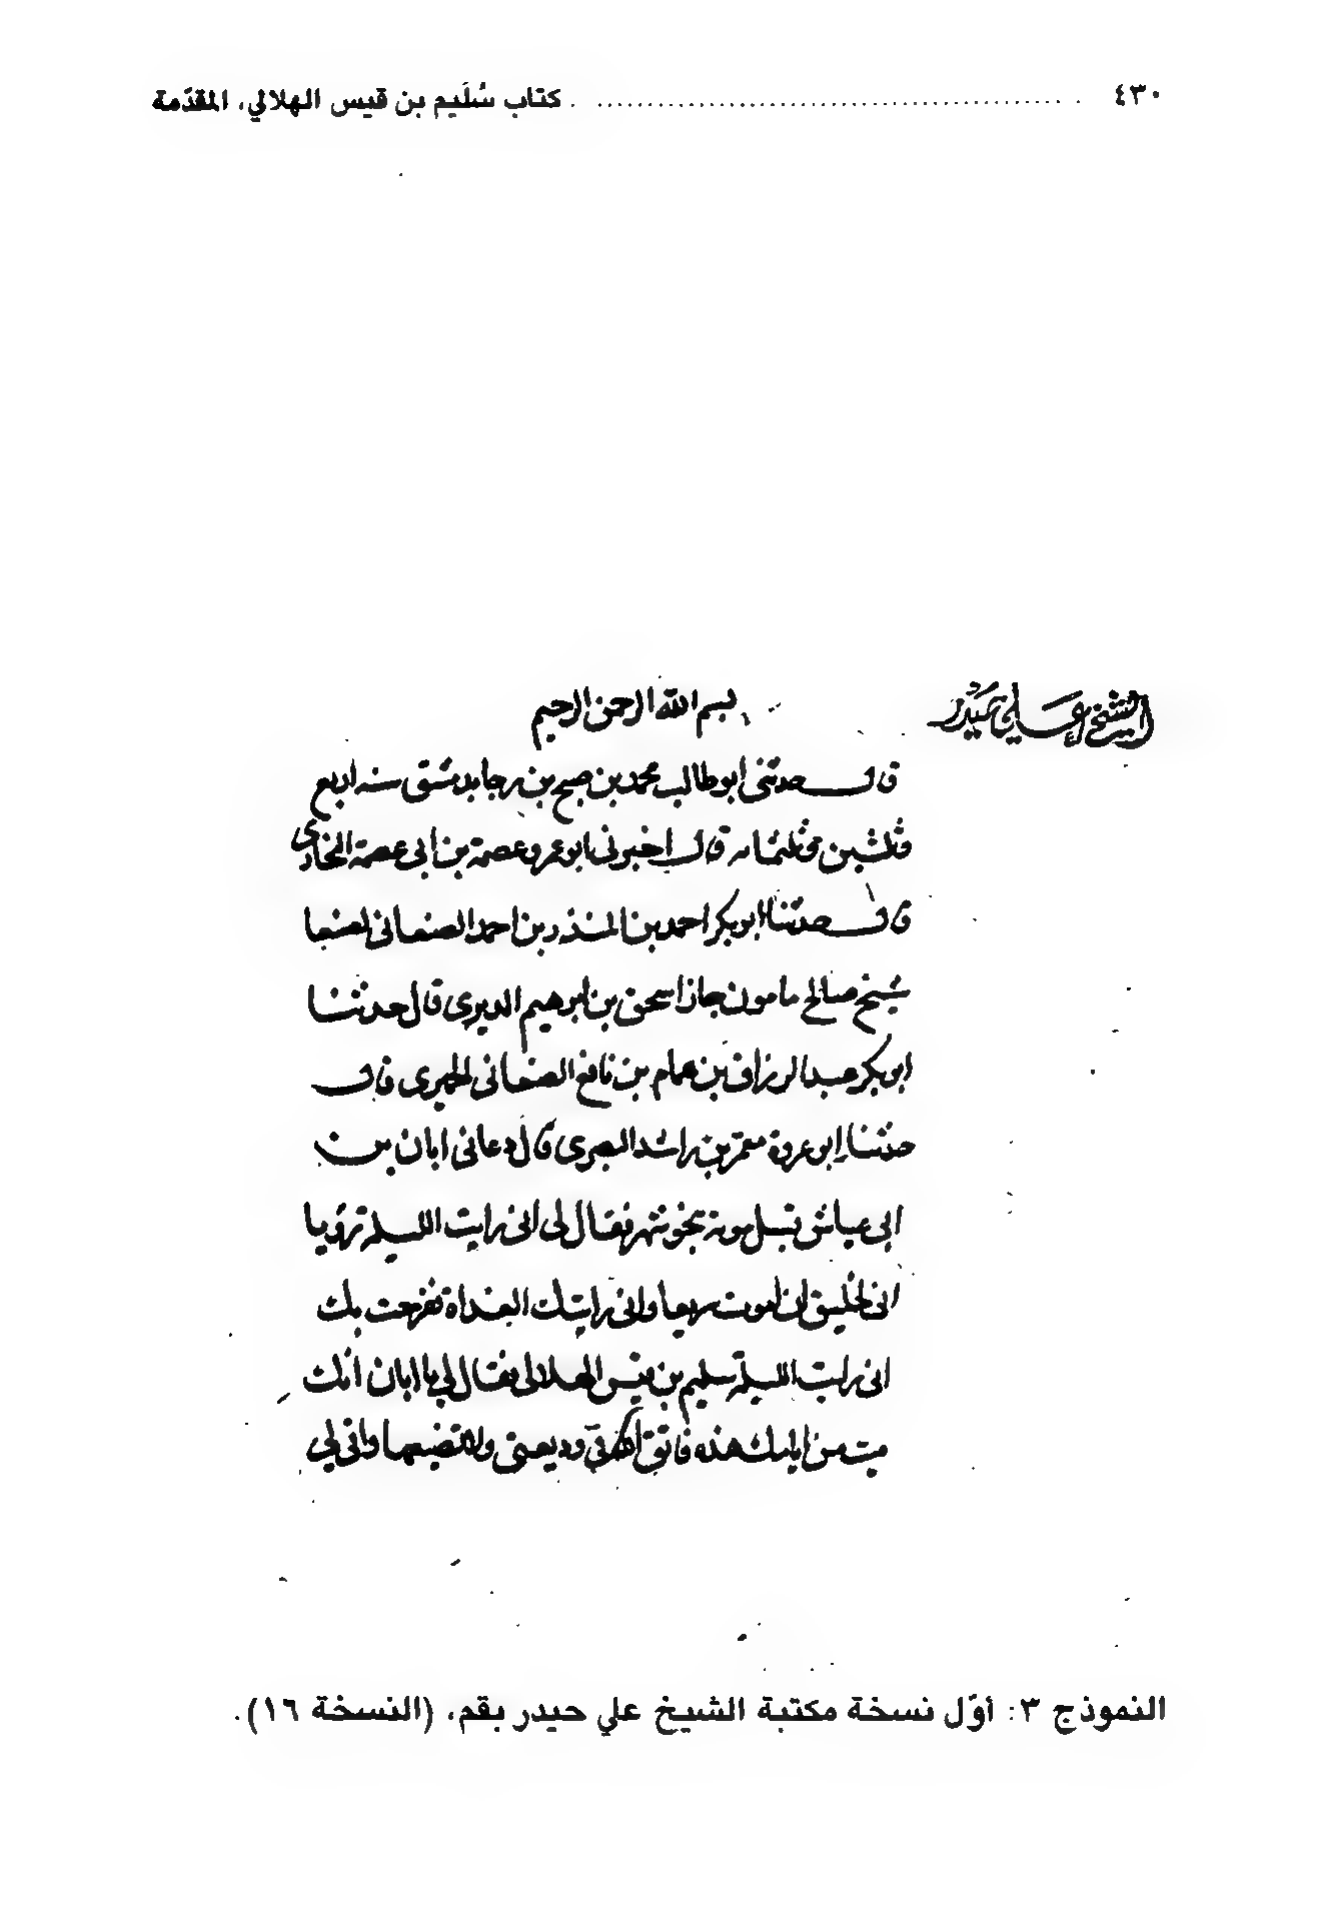 ٤٣٠ ........................................ كتاب سُلَيم بن قيس الهلالي، المقدّمة
الشيخ علي حيدر
بسم الله الرحمن الرحيم
قال حدثني ابو طالب محمد بن صبح بن رجا بدمشق سنه اربع
وثلثين وثلثمائه قال اخبرني ابو عمرو عصمة بن ابى عصمة البخارى
قال حدثنا ابو بكر احمد بن المنذر بن احمد الصنعانى بصنعا
شيخ صالح مامون جار اسحق بن ابرهيم الدبرى قال حدثنا
ابو بكر عبد الرزاق بن همام بن نافع الصنعانى الحميرى قال
حدثنا ابو عروة معمر بن راشد البصرى قال دعانى ابان بن
ابى عياش قبل موته بنحو شهر فقال لى انى رايت الليلة رؤيا
انى لخليق ان اموت سريعا وانى رايتك الغداة ففرحت بك
انى رايت الليلة سليم بن قيس الهلالى فقال لي يا ابان انك
ميت من ايامك هذه فاتق الله في وديعتى ولا تضيعها وافى لي
النموذج ٣: أوّل نسخة مكتبة الشيخ علي حيدر بقم، (النسخة ١٦).